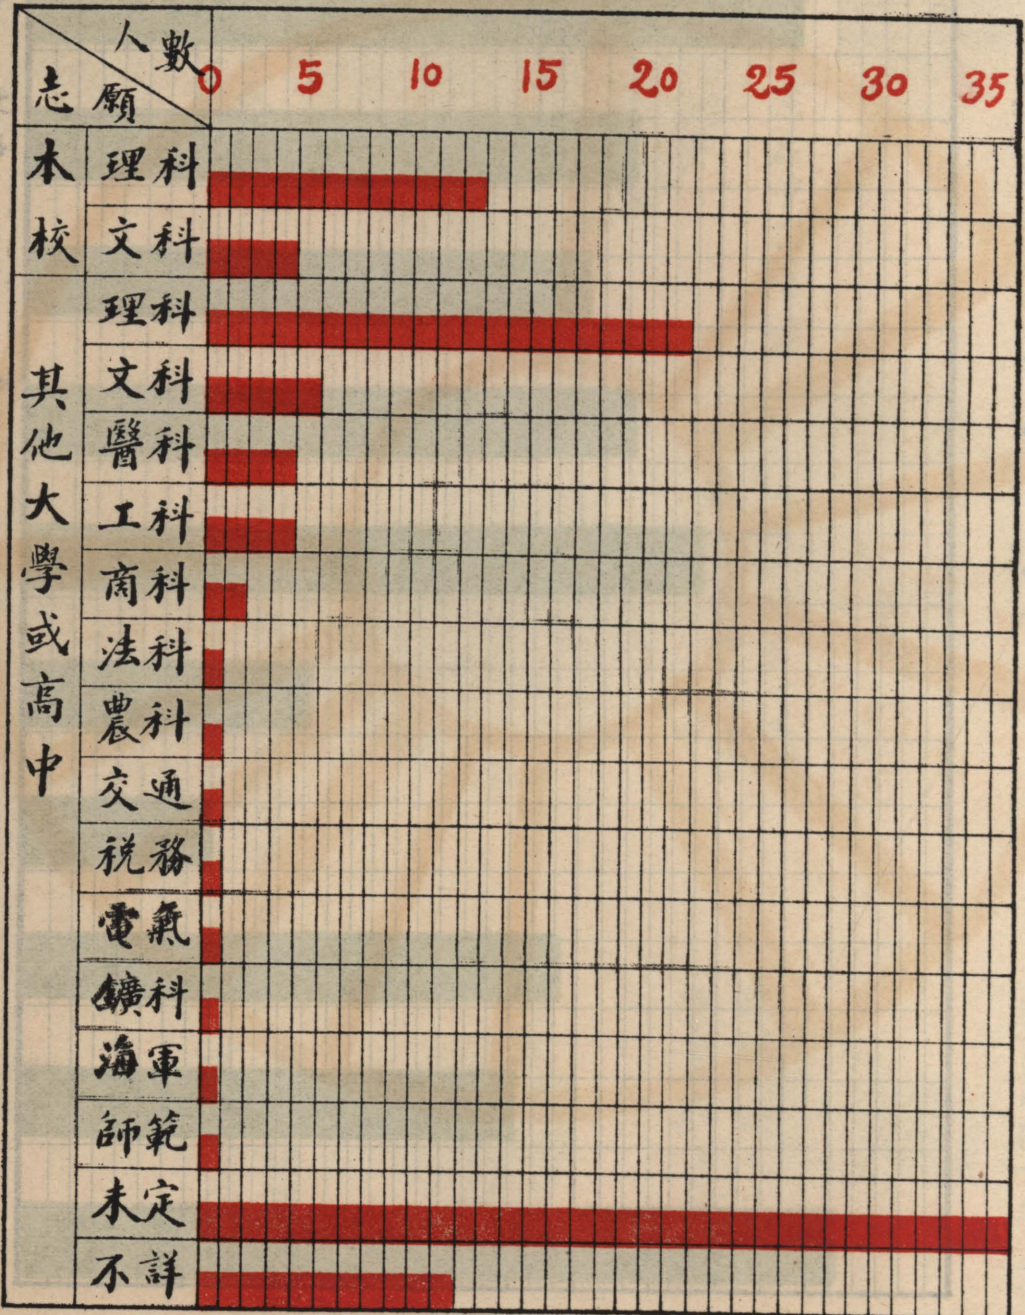 人數
志願
0 5 10 15 20 25 30 35
本校
理科
文科
其他大學或高中
理科
文科
醫科
工科
商科
法科
農科
交通
稅務
電氣
鑛科
海軍
師範
未定
不詳